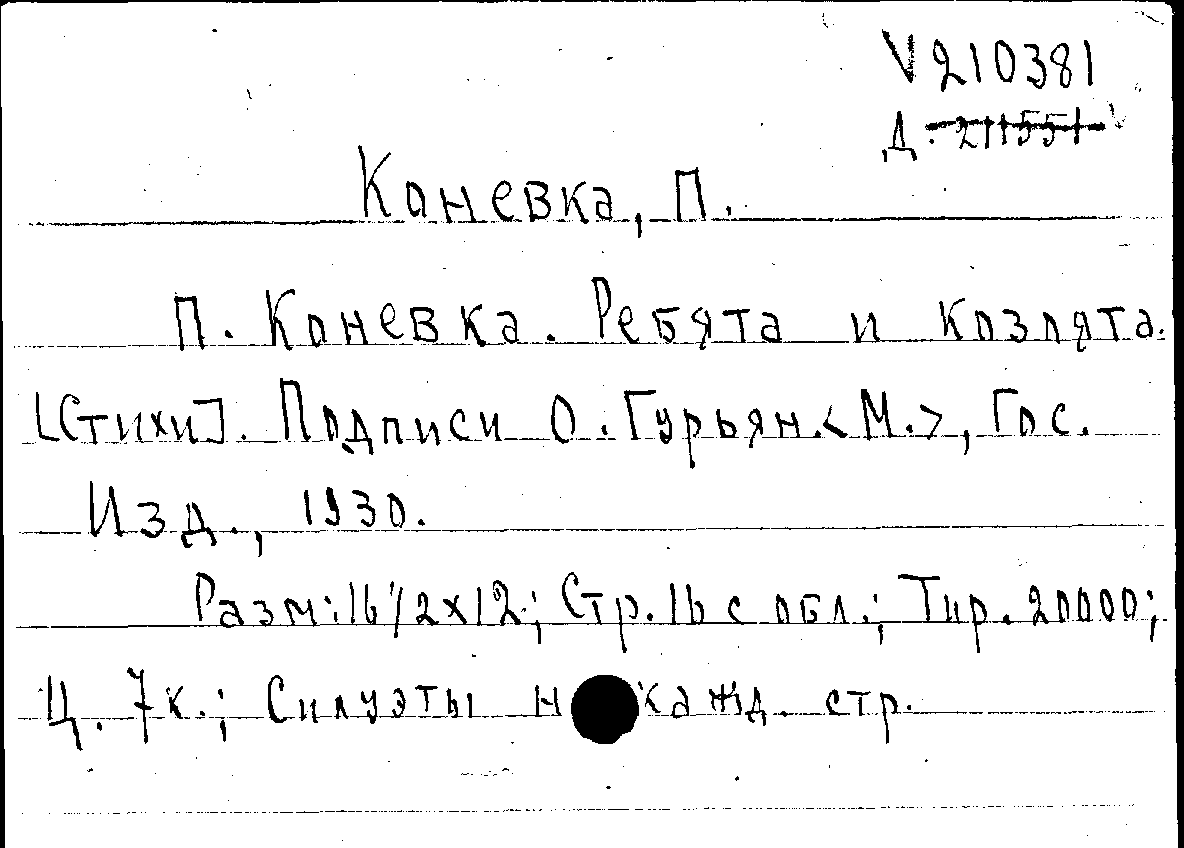 V210381
Д. 211551
Коневка, П.
П. Коневка. Ребята и козлята.
[Стихи]. Подписи О. Гурьян. <М.>, Гос.
Изд., 1930.
Разм: 16 1/2х12; Стр. 16 с обл.; Тир. 20000;
Ц. 7к.; Силуэты н кажд. стр.